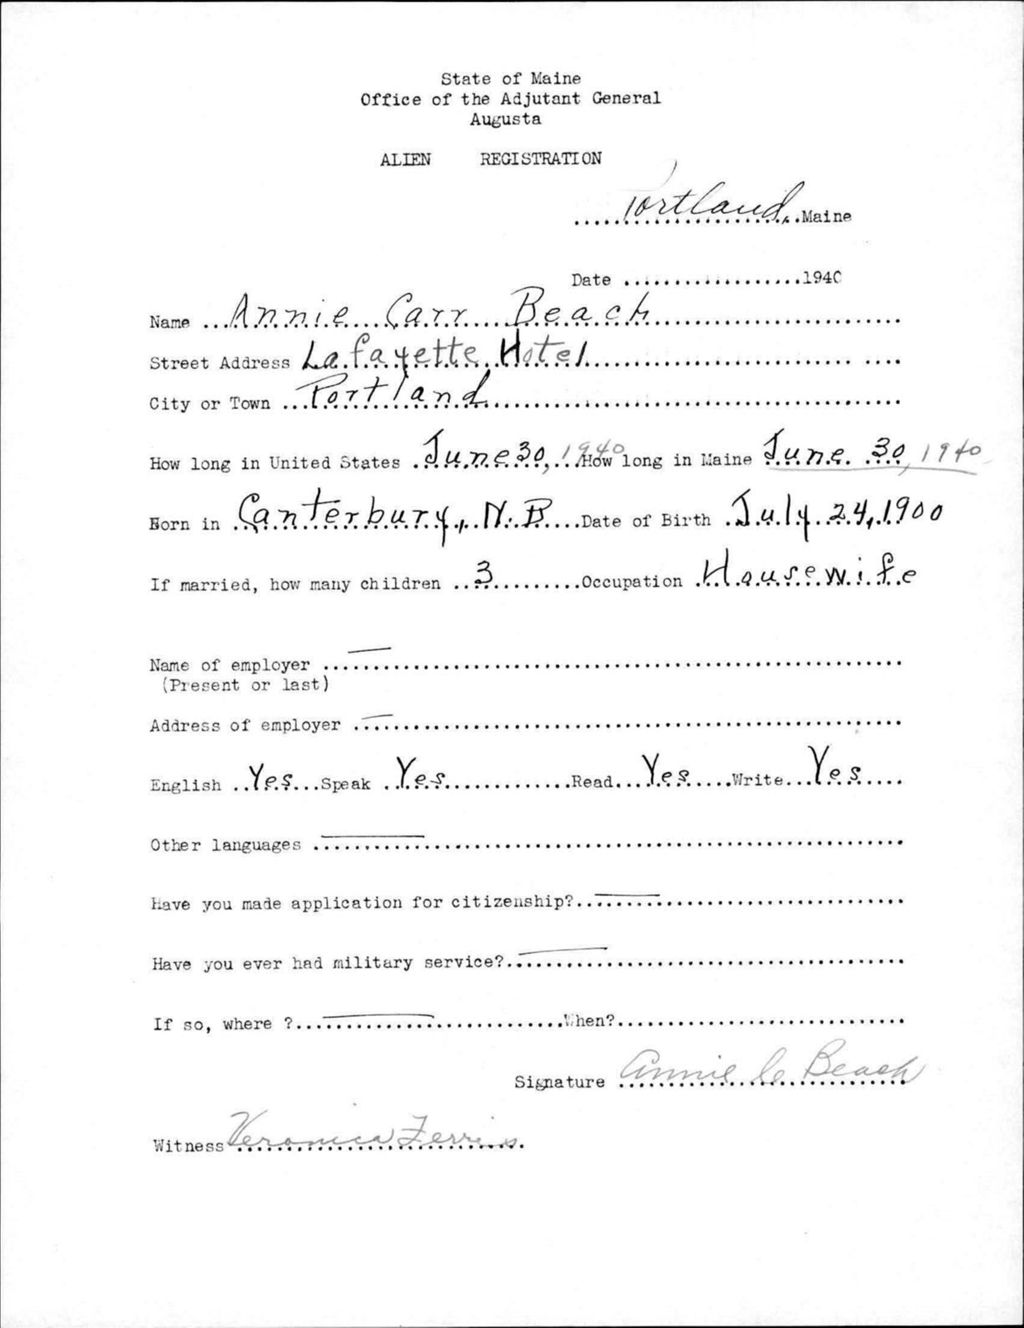 State of Maine
Office of the Adjutant General
Augusta
ALIEN REGISTRATION
Portland, Maine
Date ..................1940
Name Annie Carr Beach
Street Address Lafayette Hotel
City or Town Portland
How long in United States June 30, 1940 How long in Maine June 30, 1940
Born in Canterbury, N.B. Date of Birth July 24, 1900
If married, how many children 3 Occupation Housewife
Name of employer —
(Present or last)
Address of employer —
English Yes Speak Yes Read Yes Write Yes
Other languages —
Have you made application for citizenship? —
Have you ever had military service? —
If so, where ? — When?
Signature Annie C Beach
Witness Veronica Ferris